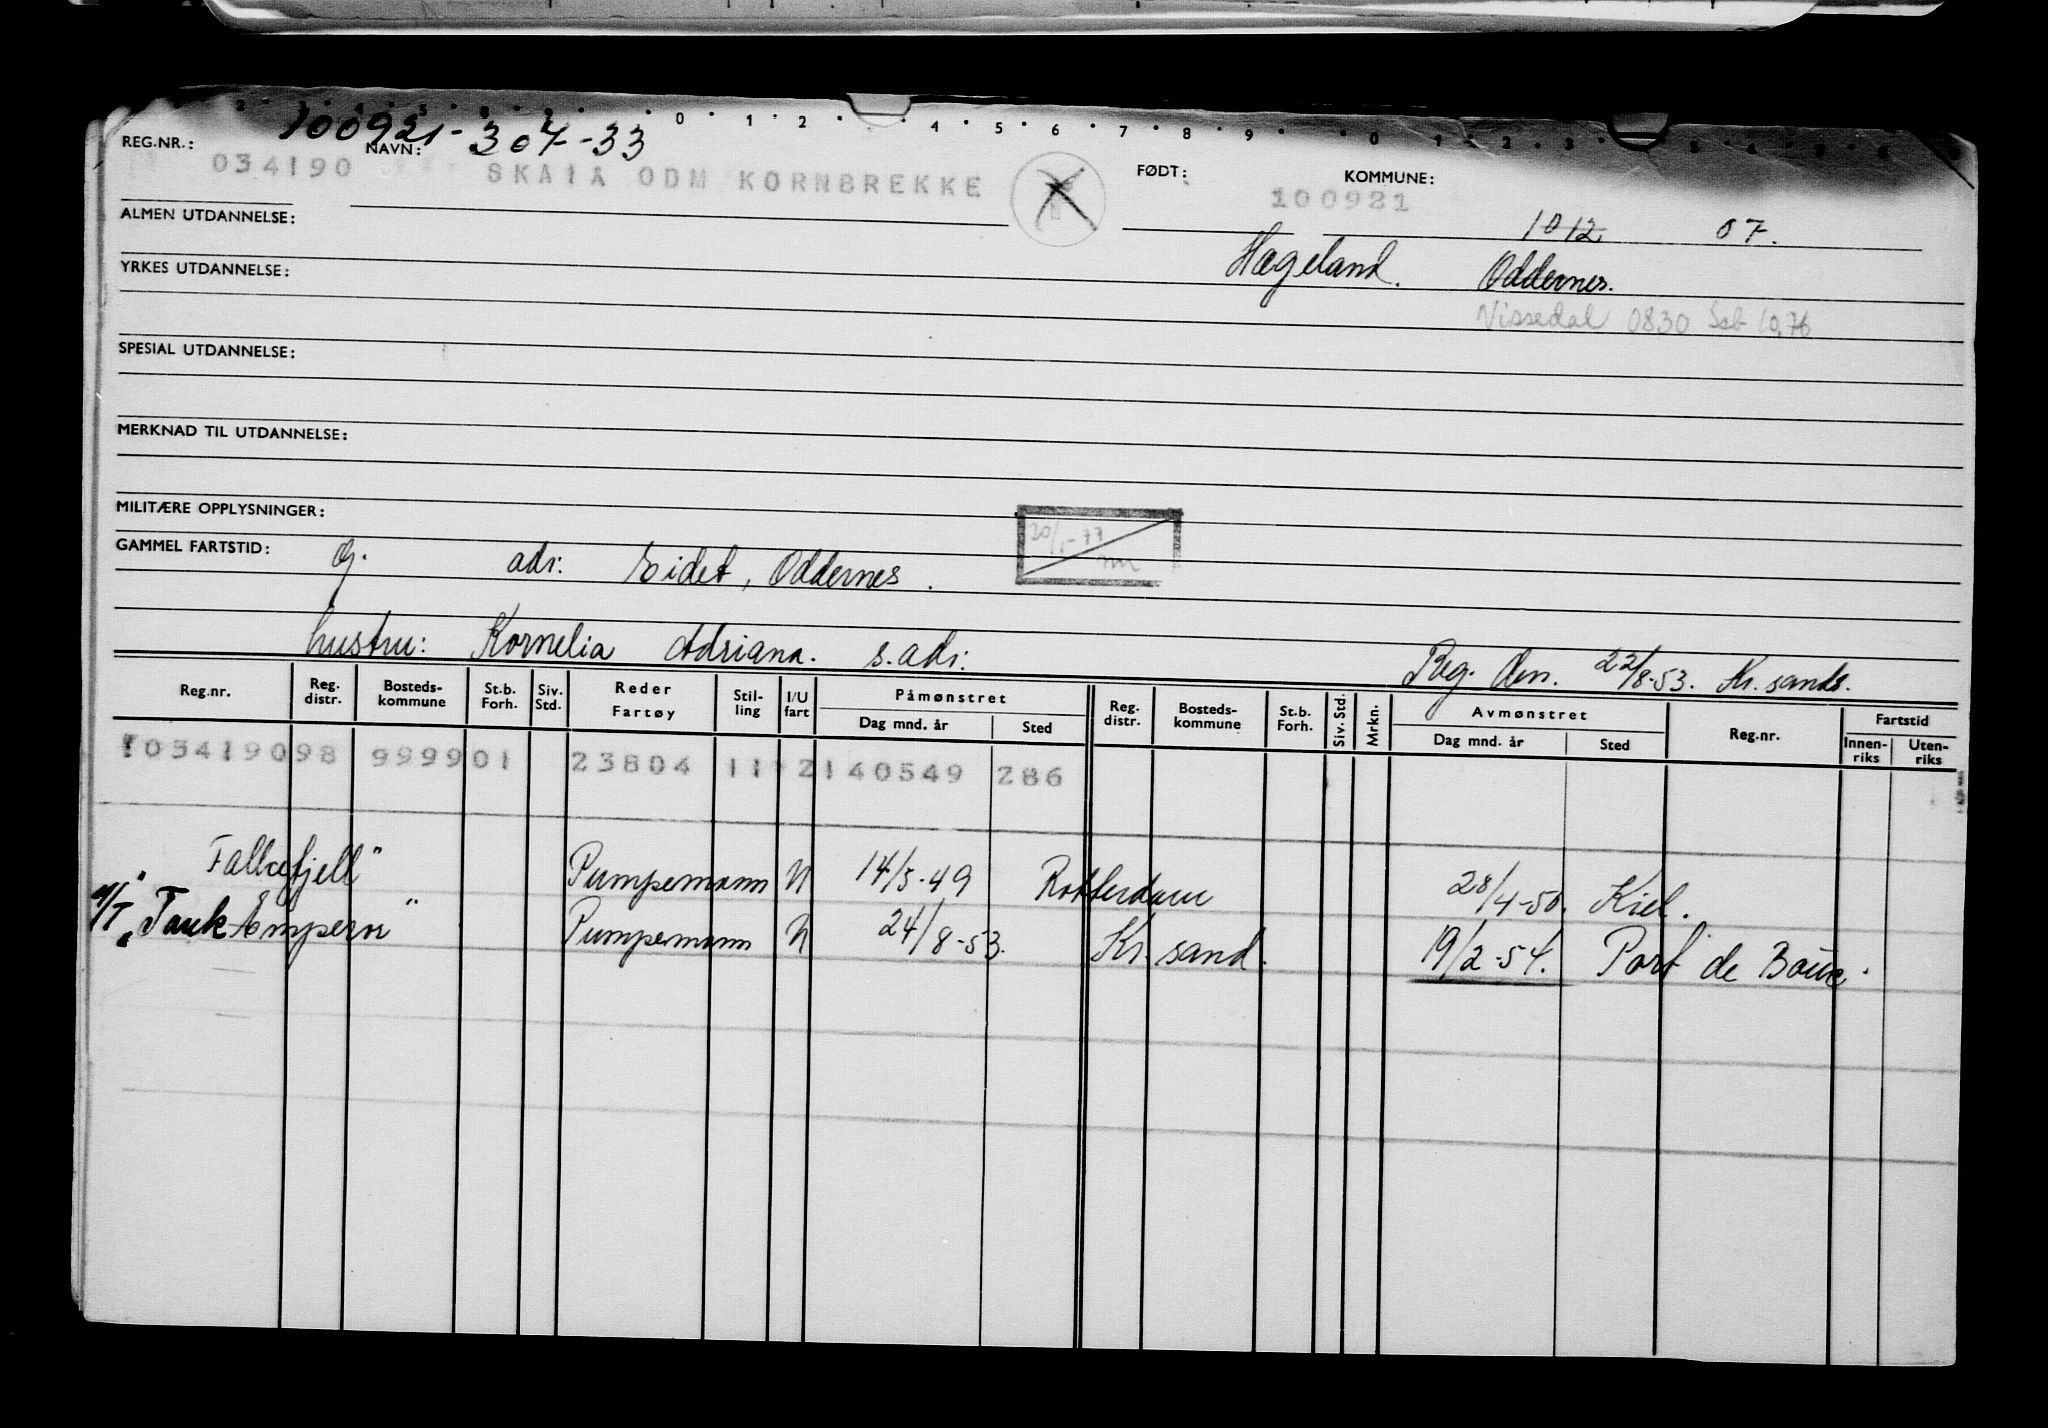 100921-307-33
REG.NR.: NAVN: FØDT: KOMMUNE:
034190 SKAIA ODM KORNBREKKE 100921
ALMEN UTDANNELSE: 1012 07.
Hægeland. Oddernes.
YRKES UTDANNELSE:
Vissedal 0830 Ssb 10,76
SPESIAL UTDANNELSE:
MERKNAD TIL UTDANNELSE:
MILITÆRE OPPLYSNINGER:
20/1-77
GAMMEL FARTSTID: g. adr: Eidet, Oddernes.
hustru: Kornelia Adriana. s.adr: Reg. den. 22/8-53. Kr.sands.
Reg.nr. Reg. distr. Bosteds-kommune St.b. Forh. Siv. Std. Reder Fartøy Stil-ling I/U fart Påmønstret Dag mnd. år Sted Reg. distr. Bosteds-kommune St.b. Forh. Siv. Std. Mrkn. Avmønstret Dag mnd. år Sted Reg.nr. Fartstid Innen-riks Uten-riks
103419098 999901 23804 11 2140549 286
"Falkefjell" Pumpemann U 14/5-49 Rotterdam 28/4-50. Kiel.
M/T "Tank Emperor" Pumpemann U 24/8-53. Kr.sand. 19/2-54. Port de Bouc.